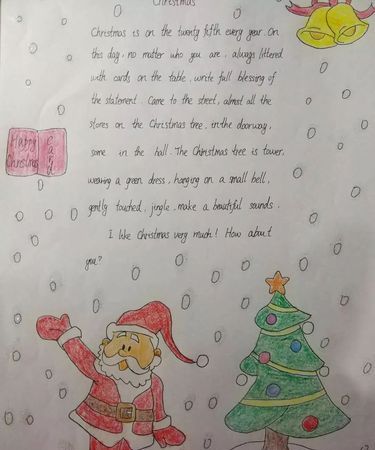 Christmas
Christmas is on the twenty fifth every year. On
this day, no matter who you are, always littered
with cards on the table, write full blessing of
the statement. Came to the street, almost all the
stores on the Christmas tree, in the doorway,
some in the hall. The Christmas tree is tower,
wearing a green dress, hanging on a small bell,
gently touched, jingle, make a beautiful sounds.
I like Christmas very much! How about
you?
Happy
Christmas
Card